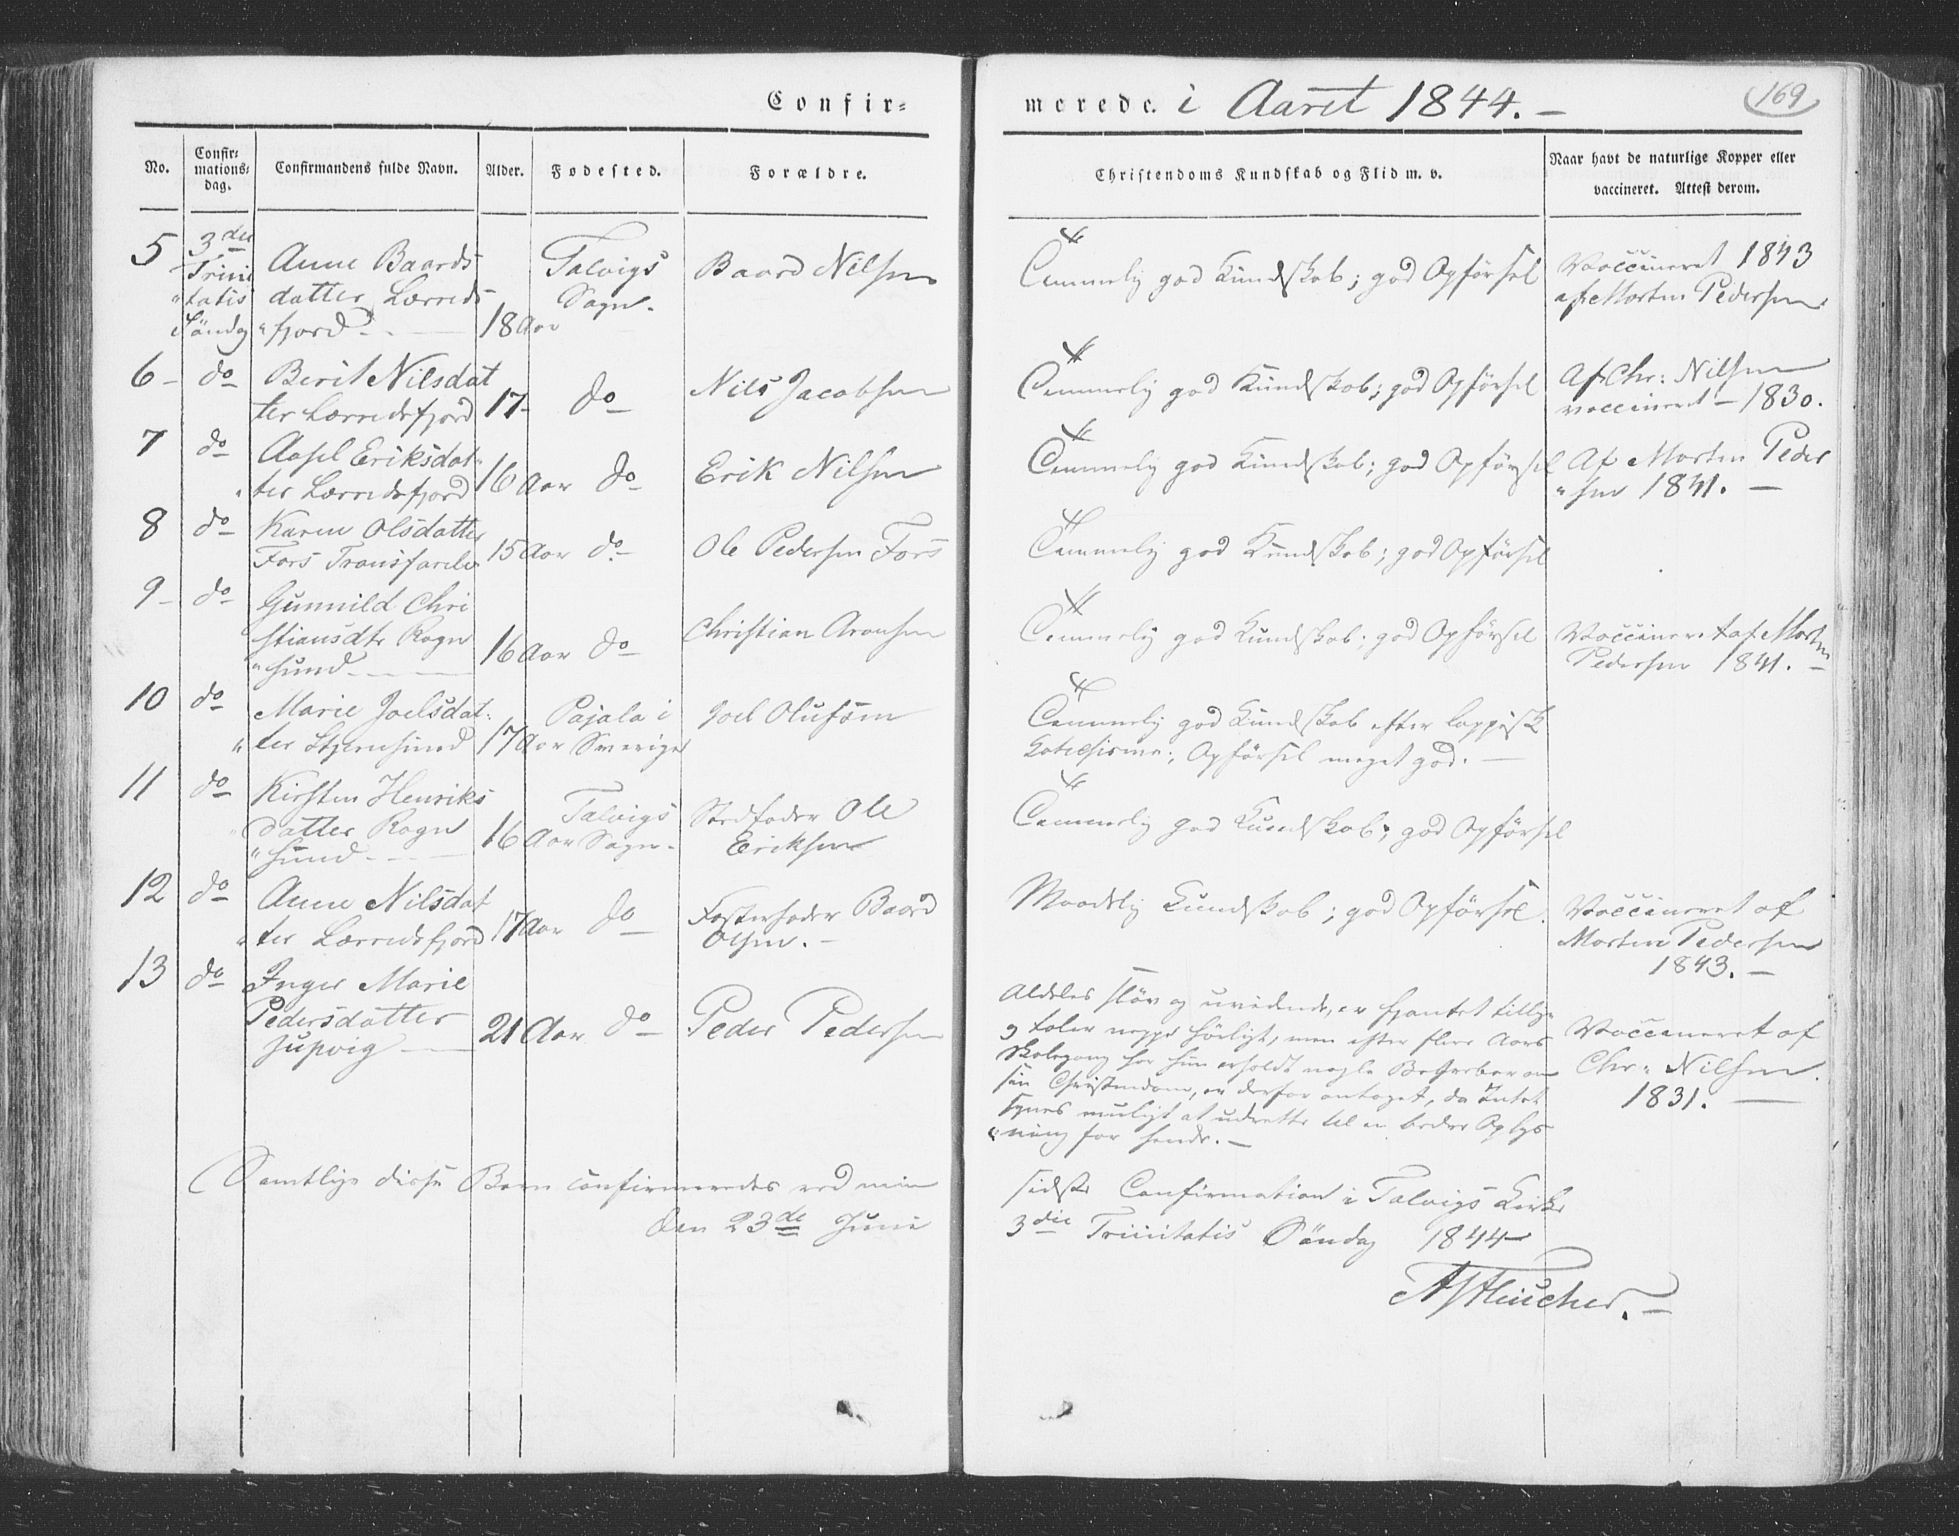 Confir-
merede. i Aaret 1844. —
169
No.
Confir-
mations-
dag.
Confirmandens fulde Navn.
Alder.
Fødested.
Forældre.
Christendoms Kundskab og Flid m. v.
Naar havt de naturlige Kopper eller
vaccineret. Attest derom.
5 3die Anne Baards
Trini datter Lerreds-
"tatis "fjord
Søndag
18 Aar
Talvigs
Sogn.
Baard Nilsen
Temmelig god Kundskab; god Opførsel
Vaccineret 1843
af Morten Pedersen.
6 – do Berit Nilsdat
ter Lerredsfjord 17– do
Nils Jacobsen
Temmelig god Kundskab; god Opførsel
Af Chr: Nilsen
vaccineret – 1830.
7 do Eriksdat-
ter Lerredsfjord 16 Aar do
Erik Nilsen
Temmelig god Kundskab; god Opførsel
Af Morten Peder
"sen 1841. —
8 do Karen Olsdatter
Fors 15 Aar do
Ole Pedersen Fors
Temmelig god Kundskab; god Opførsel
9 – do Gunnild Chri
stiansdtr Rogn
"sund
16 Aar do
Christian Aronsen
Temmelig god Kundskab; god Opførsel
Vaccineret af Morten
Pedersen 1841. —
10 do Marie Joelsdat-
"ter Stjernsund 17 Aar
Pajala i
Sverige
Joel Olufsen
Temmelig god Kundskab efter lappisk
Katechisme; Opførsel meget god. —
11 do Kirsten Henriks
datter Rogn
"sund
16 Aar
Talvigs
Sogn.
Stedfader Ole
Eriksen
Temmelig god Kundskab; god Opførsel
12 do Anne Nilsdat
"ter Lerredsfjord 17 Aar do
Fosterfader Baard
Olsen. –
Maadelig Kundskab; god Opførsel.
Vaccineret af
Morten Pedersen
1843. —
13 do Inger Marie
Pedersdatter
21 Aar do
Peder Pedersen
Aldeles sløv og uvidende, er fjantet tillige
og taler neppe hørligt, men efter flere Aars
Skolegang har hun erholdt nogle Begreber om
sin Christendom, er derfor antaget, da Intet
synes muligt at udrette til en bedre Oplys
"ning for hende. —
Vaccineret af
Chr: Nilsen.
1831. —
Samtlige disse Børn confirmeredes ved min
sidste Confirmation i Talvigs Kirke
den 23de Juni
3die Trinitatis Søndag 1844